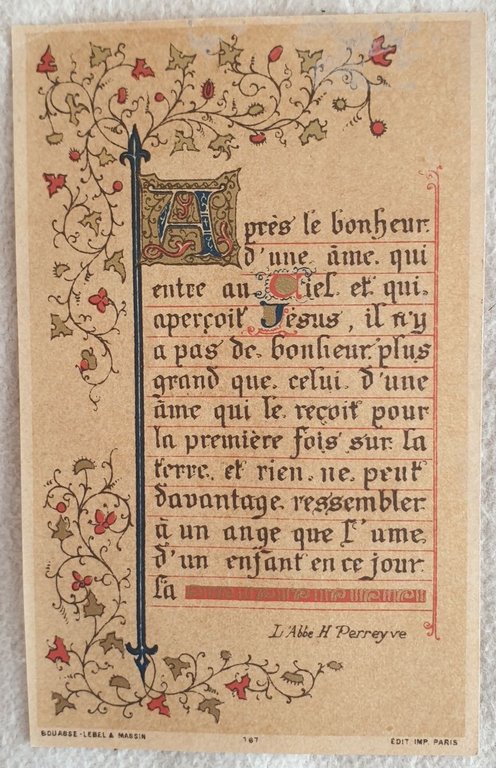 Après le bonheur
d'une âme qui
entre au Ciel et qui
aperçoit Jésus, il n'y
a pas de bonheur plus
grand que celui d'une
âme qui le reçoit pour
la première fois sur la
terre et rien ne peut
davantage ressembler
à un ange que l'ame
d'un enfant en ce jour
là
L'Abbe H Perreyve
BOUASSE-LEBEL & MASSIN
167
ÉDIT. IMP. PARIS